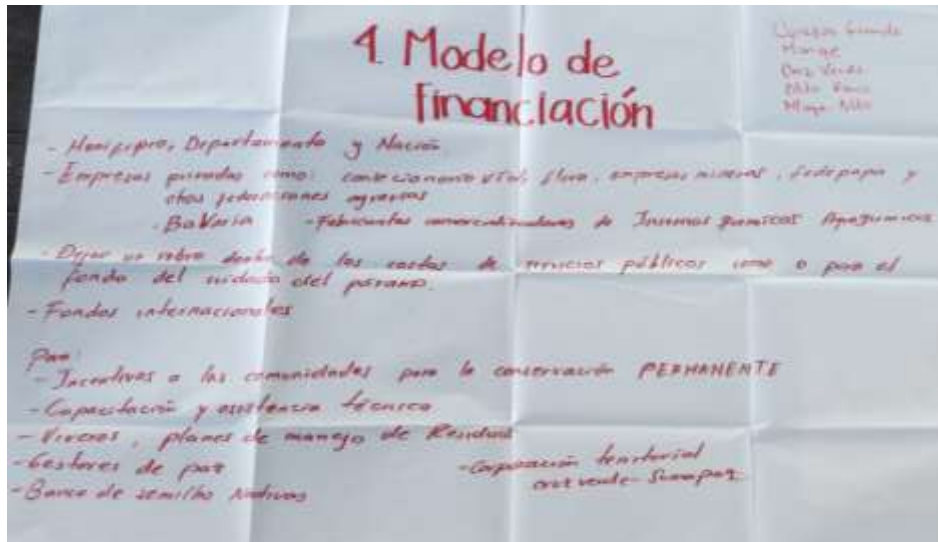 4. Modelo de
Financiación
Cruz Verde
- Municipio, Departamento y Nación
- Empresas privadas como: concesionario vial, empresas mineras, fedepapa y
otras federaciones agrarias
- Bavaria - Fabricantes comercializadores de Insumos químicos Agroquímicos
- Dejar un rubro de los costos de servicios públicos como o para el
fondo del cuidado del páramo.
- Fondos internacionales
Para:
- Incentivos a las comunidades para la conservación PERMANENTE
- Capacitación y asistencia técnica
- Viveros, planes de manejo de Residuos
- Gestores de paz
- Corporación territorial
cruz verde - Sumapaz
- Banco de semillas Nativas